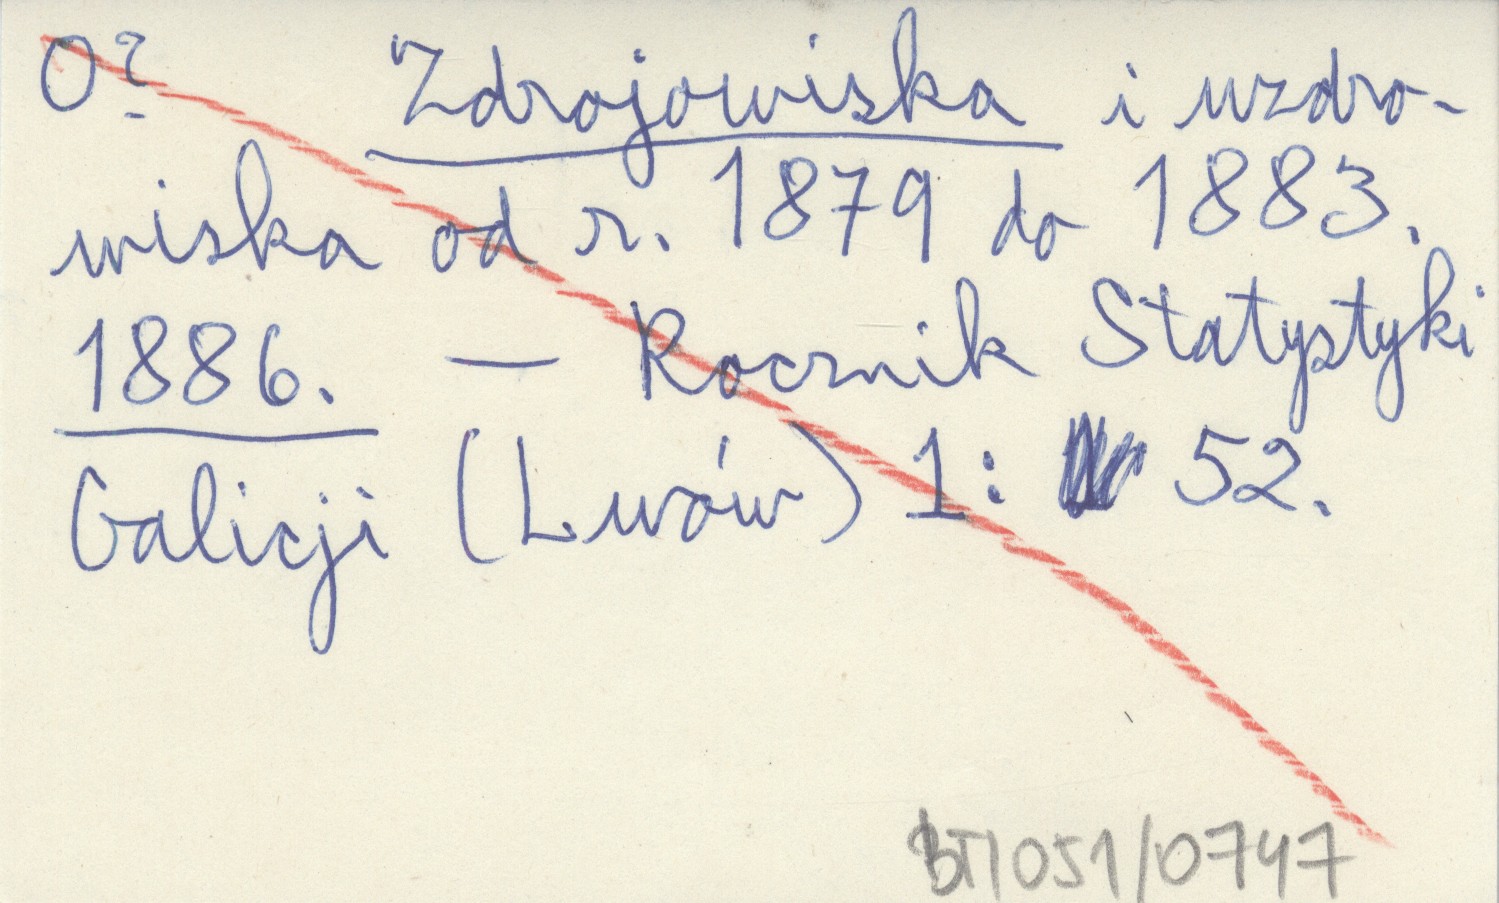 O? Zdrojowiska i uzdro-
wiska od r. 1879 do 1883.
1886. — Rocznik Statystyki
Galicji (Lwów) 1: 52.
BT/051/0747